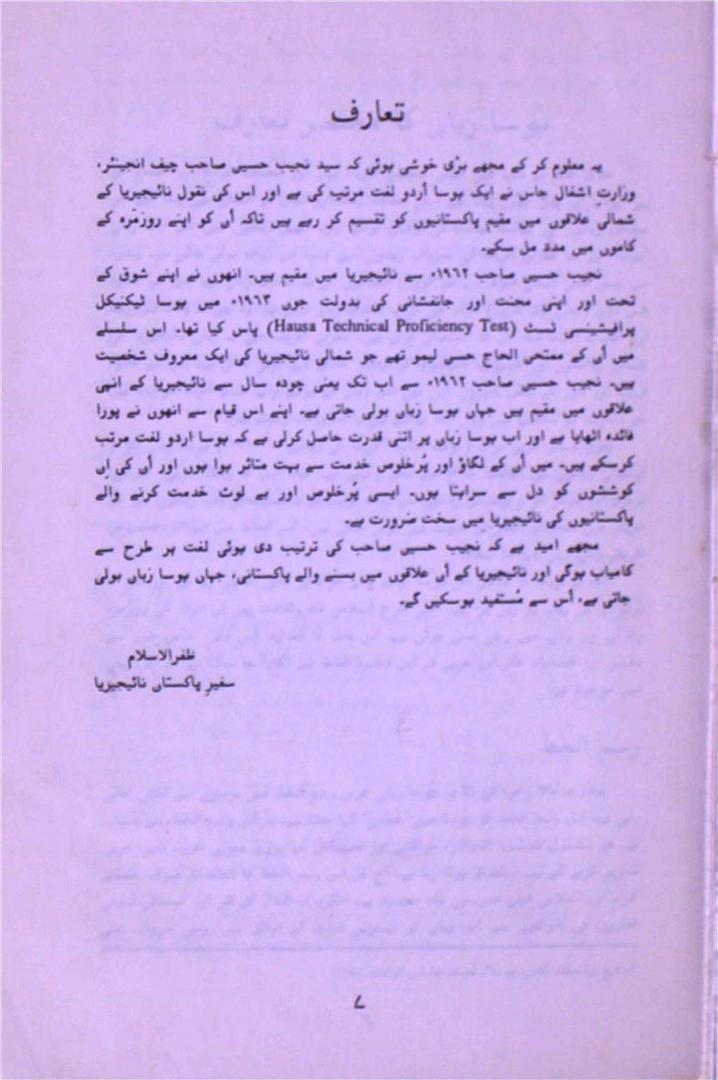 تعارف
یہ معلوم کر کے مجھے بڑی خوشی ہوئی کہ سید نجیب حسین صاحب چیف انجینئر،
وزارتِ اشغال جاس نے ایک ہوسا اُردو لغت مرتب کی ہے اور اس کی نقول نائیجیریا کے
شمالی علاقوں میں مقیم پاکستانیوں کو تقسیم کر رہے ہیں تاکہ اُن کو اپنے روزمّرہ کے
کاموں میں مدد مل سکے۔
نجیب حسین صاحب ۱۹۶۲ء سے نائیجیریا میں مقیم ہیں۔ انھوں نے اپنے شوق کے
تحت اور اپنی محنت اور جانفشانی کی بدولت جون ۱۹۶۳ء میں ہوسا ٹیکنیکل
پرافیشینسی ٹسٹ (Hausa Technical Proficiency Test) پاس کیا تھا۔ اس سلسلے
میں اُن کے ممتحن الحاج حسن لیمو تھے جو شمالی نائیجیریا کی ایک معروف شخصیت
ہیں۔ نجیب حسین صاحب ۱۹۶۲ء سے اب تک یعنی چودہ سال سے نائیجیریا کے انہی
علاقوں میں مقیم ہیں جہاں ہوسا زبان بولی جاتی ہے۔ اپنے اس قیام سے انھوں نے پورا
فائدہ اٹھایا ہے اور اب ہوسا زبان پر اتنی قدرت حاصل کرلی ہے کہ ہوسا اردو لغت مرتب
کرسکے ہیں۔ میں اُن کے لگاؤ اور پُرخلوص خدمت سے بہت متاثر ہوا ہوں اور اُن کی اِن
کوششوں کو دل سے سراہتا ہوں۔ ایسی پُرخلوص اور بے لوث خدمت کرنے والے
پاکستانیوں کی نائیجیریا میں سخت ضرورت ہے۔
مجھے امید ہے کہ نجیب حسین صاحب کی ترتیب دی ہوئی لغت ہر طرح سے
کامیاب ہوگی اور نائیجیریا کے اُن علاقوں میں بسنے والے پاکستانی، جہاں ہوسا زبان بولی
جاتی ہے، اُس سے مُستفید ہوسکیں گے۔
ظفرالاسلام
سفیرِ پاکستان نائیجیریا
۷